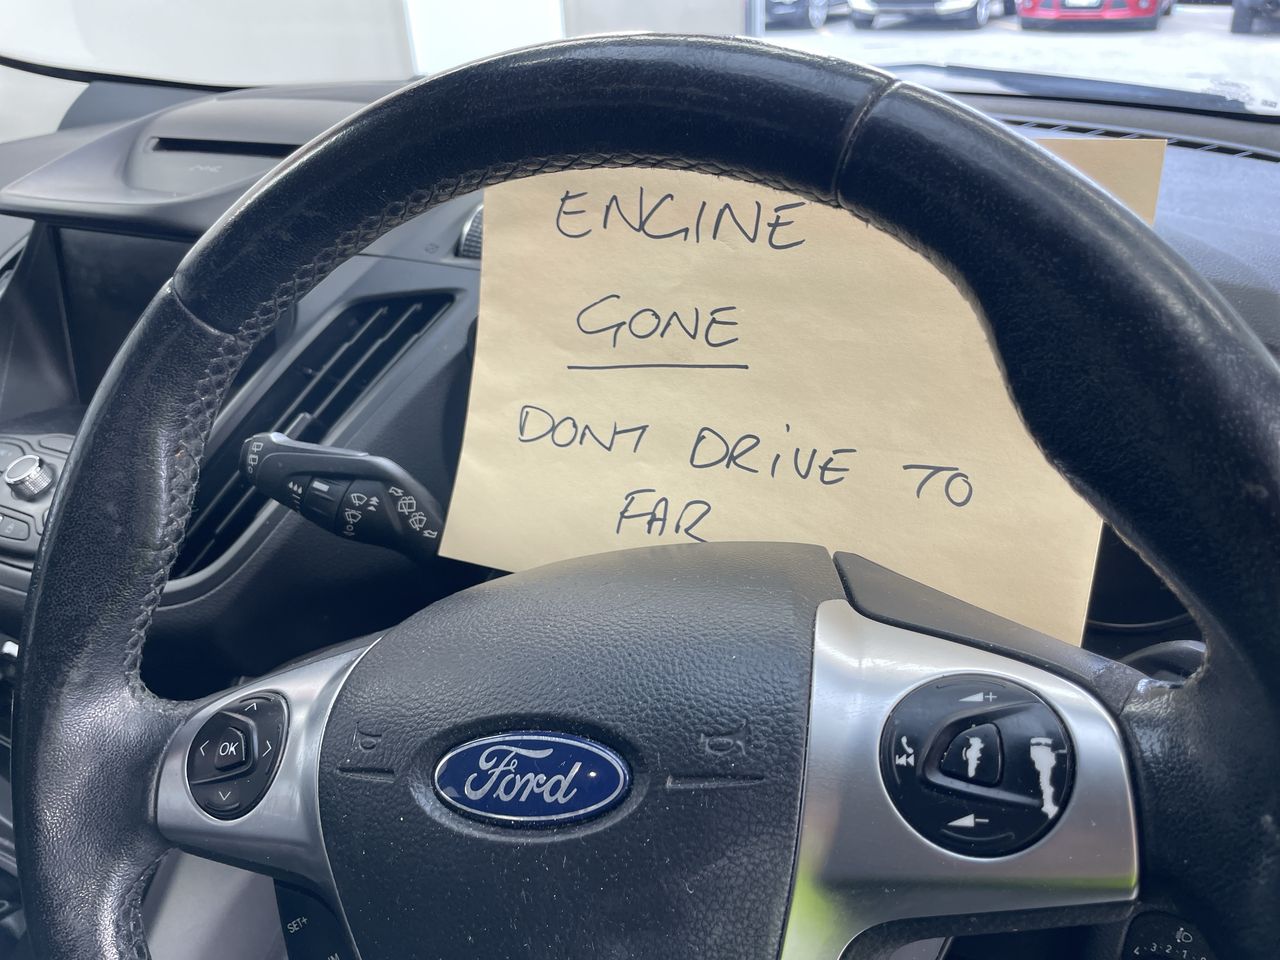 ENGINE
GONE
DONT DRIVE TO
FAR
OK
Ford
SET+